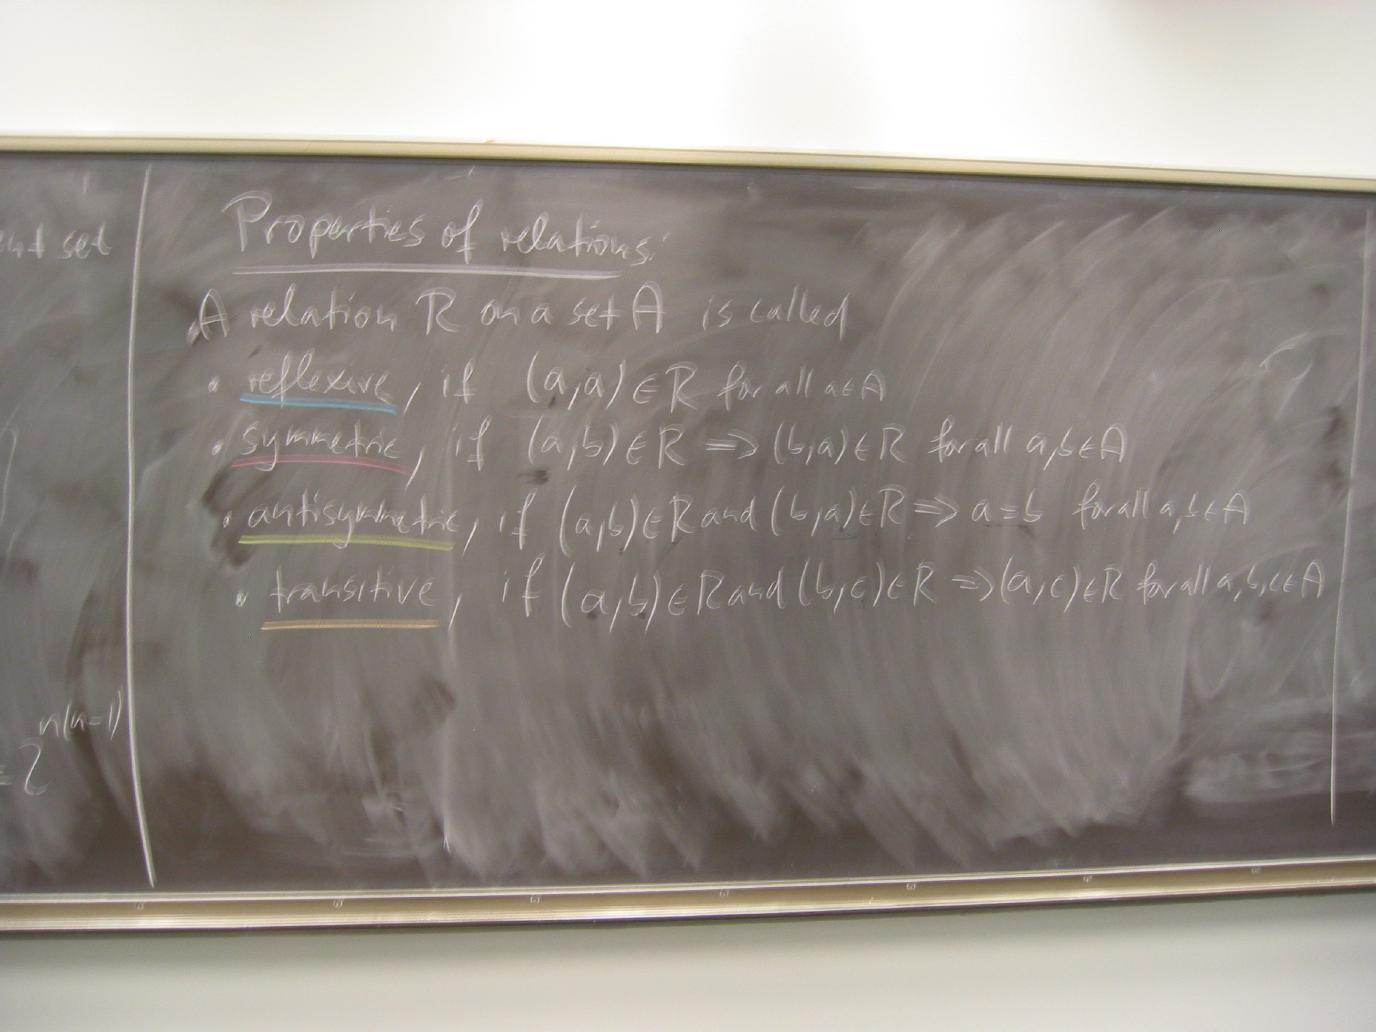 set
= 2^n(n-1)
Properties of relations:
A relation R on a set A is called
• reflexive, if (a,a) ∈ R for all a ∈ A
• symmetric, if (a,b) ∈ R ⇒ (b,a) ∈ R for all a,b ∈ A
• antisymmetric, if (a,b) ∈ R and (b,a) ∈ R ⇒ a=b for all a,b ∈ A
• transitive, if (a,b) ∈ R and (b,c) ∈ R ⇒ (a,c) ∈ R for all a,b,c ∈ A